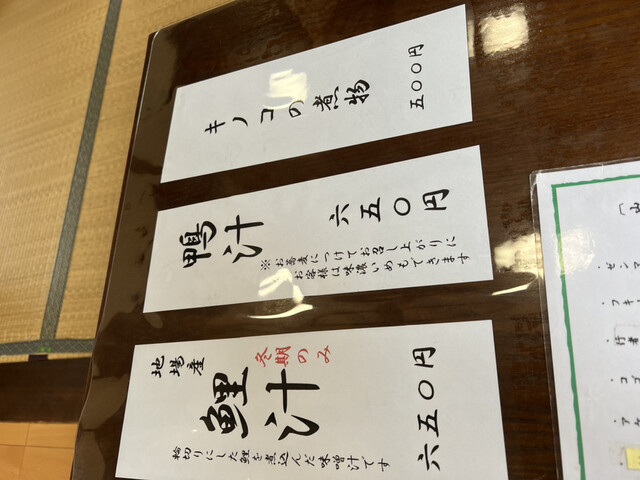 キノコの煮物
五〇〇円
鴨汁
六五〇円
※お蕎麦につけてお召し上がりに
お客様は味濃いめもできます
地場産
冬期のみ
鯉汁
六五〇円
輪切りにした鯉を煮込んだ味噌汁です
山
・ゼンマ
・フキ
・行者
・コゴ
・アケ